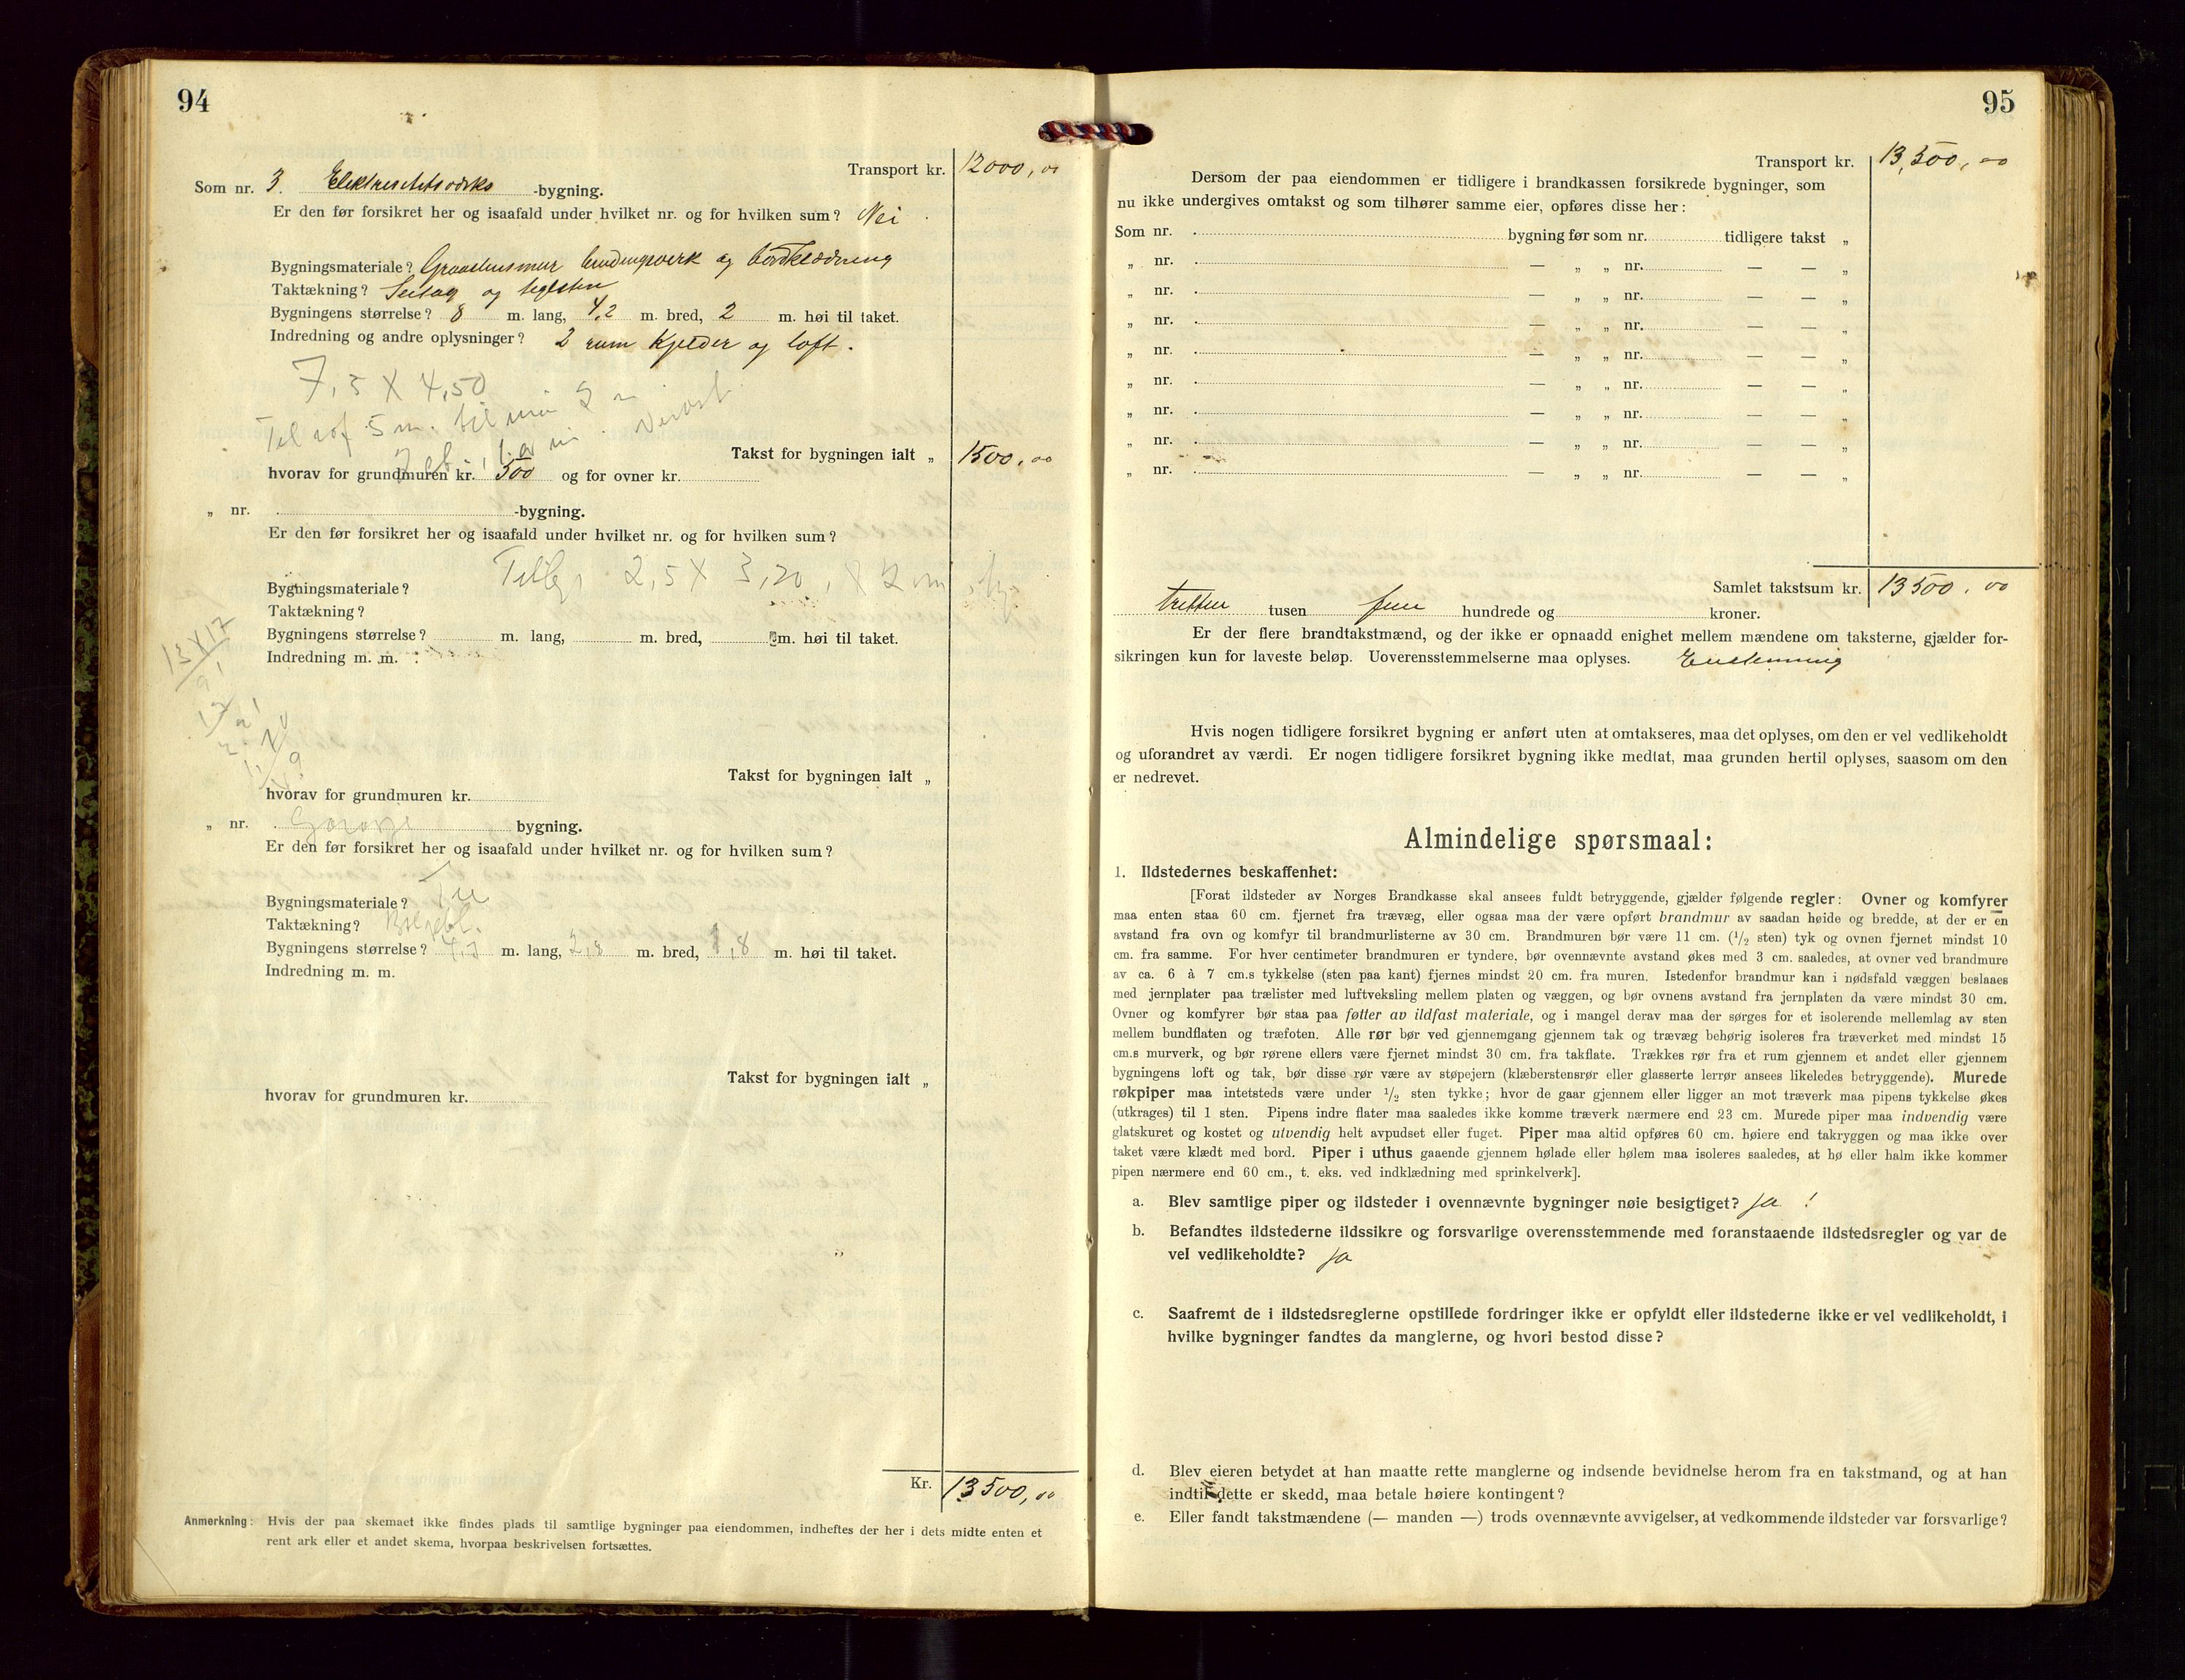 94
Transport kr. 12000,00
Som nr. 3. Elektrisitetsverks -bygning.
Er den før forsikret her og isaafald under hvilket nr. og for hvilken sum? Nei.
Bygningsmateriale? Graastensmur bindingsverk og bordklædning
Taktækning? og teglsten
Bygningens størrelse? 8 m. lang, 4,2 m. bred, 2 m. høi til taket.
Indredning og andre oplysninger? 2 rum kjelder og loft.
7,5 X 4,50
5 m.
Takst for bygningen ialt „ 1500,00
hvorav for grundmuren kr. 500 og for ovner kr.
„ nr. -bygning.
Er den før forsikret her og isaafald under hvilket nr. og for hvilken sum?
Tilbg 2,5 X 3,20, X 2 m
Bygningsmateriale?
Taktækning?
Bygningens størrelse? m. lang, m. bred, m. høi til taket.
Indredning m. m.
13 X 17
Takst for bygningen ialt „
hvorav for grundmuren kr.
„ nr. Garasje bygning.
Er den før forsikret her og isaafald under hvilket nr. og for hvilken sum?
Bygningsmateriale? Tre
Taktækning? Bølgebl.
Bygningens størrelse? m. lang, 2,8 m. bred, 1,8 m. høi til taket.
Indredning m. m.
Takst for bygningen ialt „
hvorav for grundmuren kr.
Kr. 13500,00
Anmerkning: Hvis der paa skemaet ikke findes plads til samtlige bygninger paa eiendommen, indheftes der her i dets midte enten et
rent ark eller et andet skema, hvorpaa beskrivelsen fortsættes.
95
Transport kr. 13,500,00
Dersom der paa eiendommen er tidligere i brandkassen forsikrede bygninger, som
nu ikke undergives omtakst og som tilhører samme eier, opføres disse her:
Som nr. bygning før som nr. tidligere takst „
„ nr. — „ „ nr. — — „
„ nr. — „ „ nr. — — „
„ nr. — „ „ nr. — — „
„ nr. — „ „ nr. — — „
„ nr. — „ „ nr. — — „
„ nr. — „ „ nr. — — „
„ nr. — „ „ nr. — — „
„ nr. — „ „ nr. — — „
Samlet takstsum kr. 13500,00
tretten tusen fem hundrede og kroner.
Er der flere brandtakstmænd, og der ikke er opnaadd enighet mellem mændene om taksterne, gjælder for-
sikringen kun for laveste beløp. Uoverensstemmelserne maa oplyses. Enstemmig
Hvis nogen tidligere forsikret bygning er anført uten at omtakseres, maa det oplyses, om den er vel vedlikeholdt
og uforandret av værdi. Er nogen tidligere forsikret bygning ikke medtat, maa grunden hertil oplyses, saasom om den
er nedrevet.
Almindelige spørsmaal:
1. Ildstedernes beskaffenhet:
[Forat ildsteder av Norges Brandkasse skal ansees fuldt betryggende, gjælder følgende regler: Ovner og komfyrer
maa enten staa 60 cm. fjernet fra trævæg, eller ogsaa maa der være opført brandmur av saadan høide og bredde, at der er en
avstand fra ovn og komfyr til brandmurlisterne av 30 cm. Brandmuren bør være 11 cm. (1/2 sten) tyk og ovnen fjernet mindst 10
cm. fra samme. For hver centimeter brandmuren er tyndere, bør ovennævnte avstand økes med 3 cm. saaledes, at ovner ved brandmure
av ca. 6 à 7 cm.s tykkelse (sten paa kant) fjernes mindst 20 cm. fra muren. Istedenfor brandmur kan i nødsfald væggen beslaaes
med jernplater paa trælister med luftveksling mellem platen og væggen, og bør ovnens avstand fra jernplaten da være mindst 30 cm.
Ovner og komfyrer bør staa paa føtter av ildfast materiale, og i mangel derav maa der sørges for et isolerende mellemlag av sten
mellem bundflaten og træfoten. Alle rør bør ved gjennemgang gjennem tak og trævæg behørig isoleres fra træverket med mindst 15
cm.s murverk, og bør rørene ellers være fjernet mindst 30 cm. fra takflate. Trækkes rør fra et rum gjennem et andet eller gjennem
bygningens loft og tak, bør disse rør være av støpejern (klæberstensrør eller glasserte lerrør ansees likeledes betryggende). Murede
røkpiper maa intetsteds være under 1/2 sten tykke; hvor de gaar gjennem eller ligger an mot træverk maa pipens tykkelse økes
(utkrages) til 1 sten. Pipens indre flater maa saaledes ikke komme træverk nærmere end 23 cm. Murede piper maa indvendig være
glatskuret og kostet og utvendig helt avpudset eller fuget. Piper maa altid opføres 60 cm. høiere end takryggen og maa ikke over
taket være klædt med bord. Piper i uthus gaaende gjennem hølade eller hølem maa isoleres saaledes, at hø eller halm ikke kommer
pipen nærmere end 60 cm., t. eks. ved indklædning med sprinkelverk].
a. Blev samtlige piper og ildsteder i ovennævnte bygninger nøie besigtiget? Ja !
b. Befandtes ildstederne ildssikre og forsvarlige overensstemmende med foranstaaende ildstedsregler og var de
vel vedlikeholdte? Ja
c. Saafremt de i ildstedsreglerne opstillede fordringer ikke er opfyldt eller ildstederne ikke er vel vedlikeholdt, i
hvilke bygninger fandtes da manglerne, og hvori bestod disse?
d. Blev eieren betydet at han maatte rette manglerne og indsende bevidnelse herom fra en takstmand, og at han
indtil dette er skedd, maa betale høiere kontingent?
e. Eller fandt takstmændene (— manden —) trods ovennævnte avvigelser, at vedkommende ildsteder var forsvarlige?